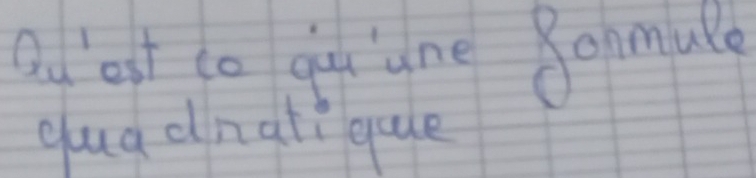 Qu'est ce qu'une formule
quadratique